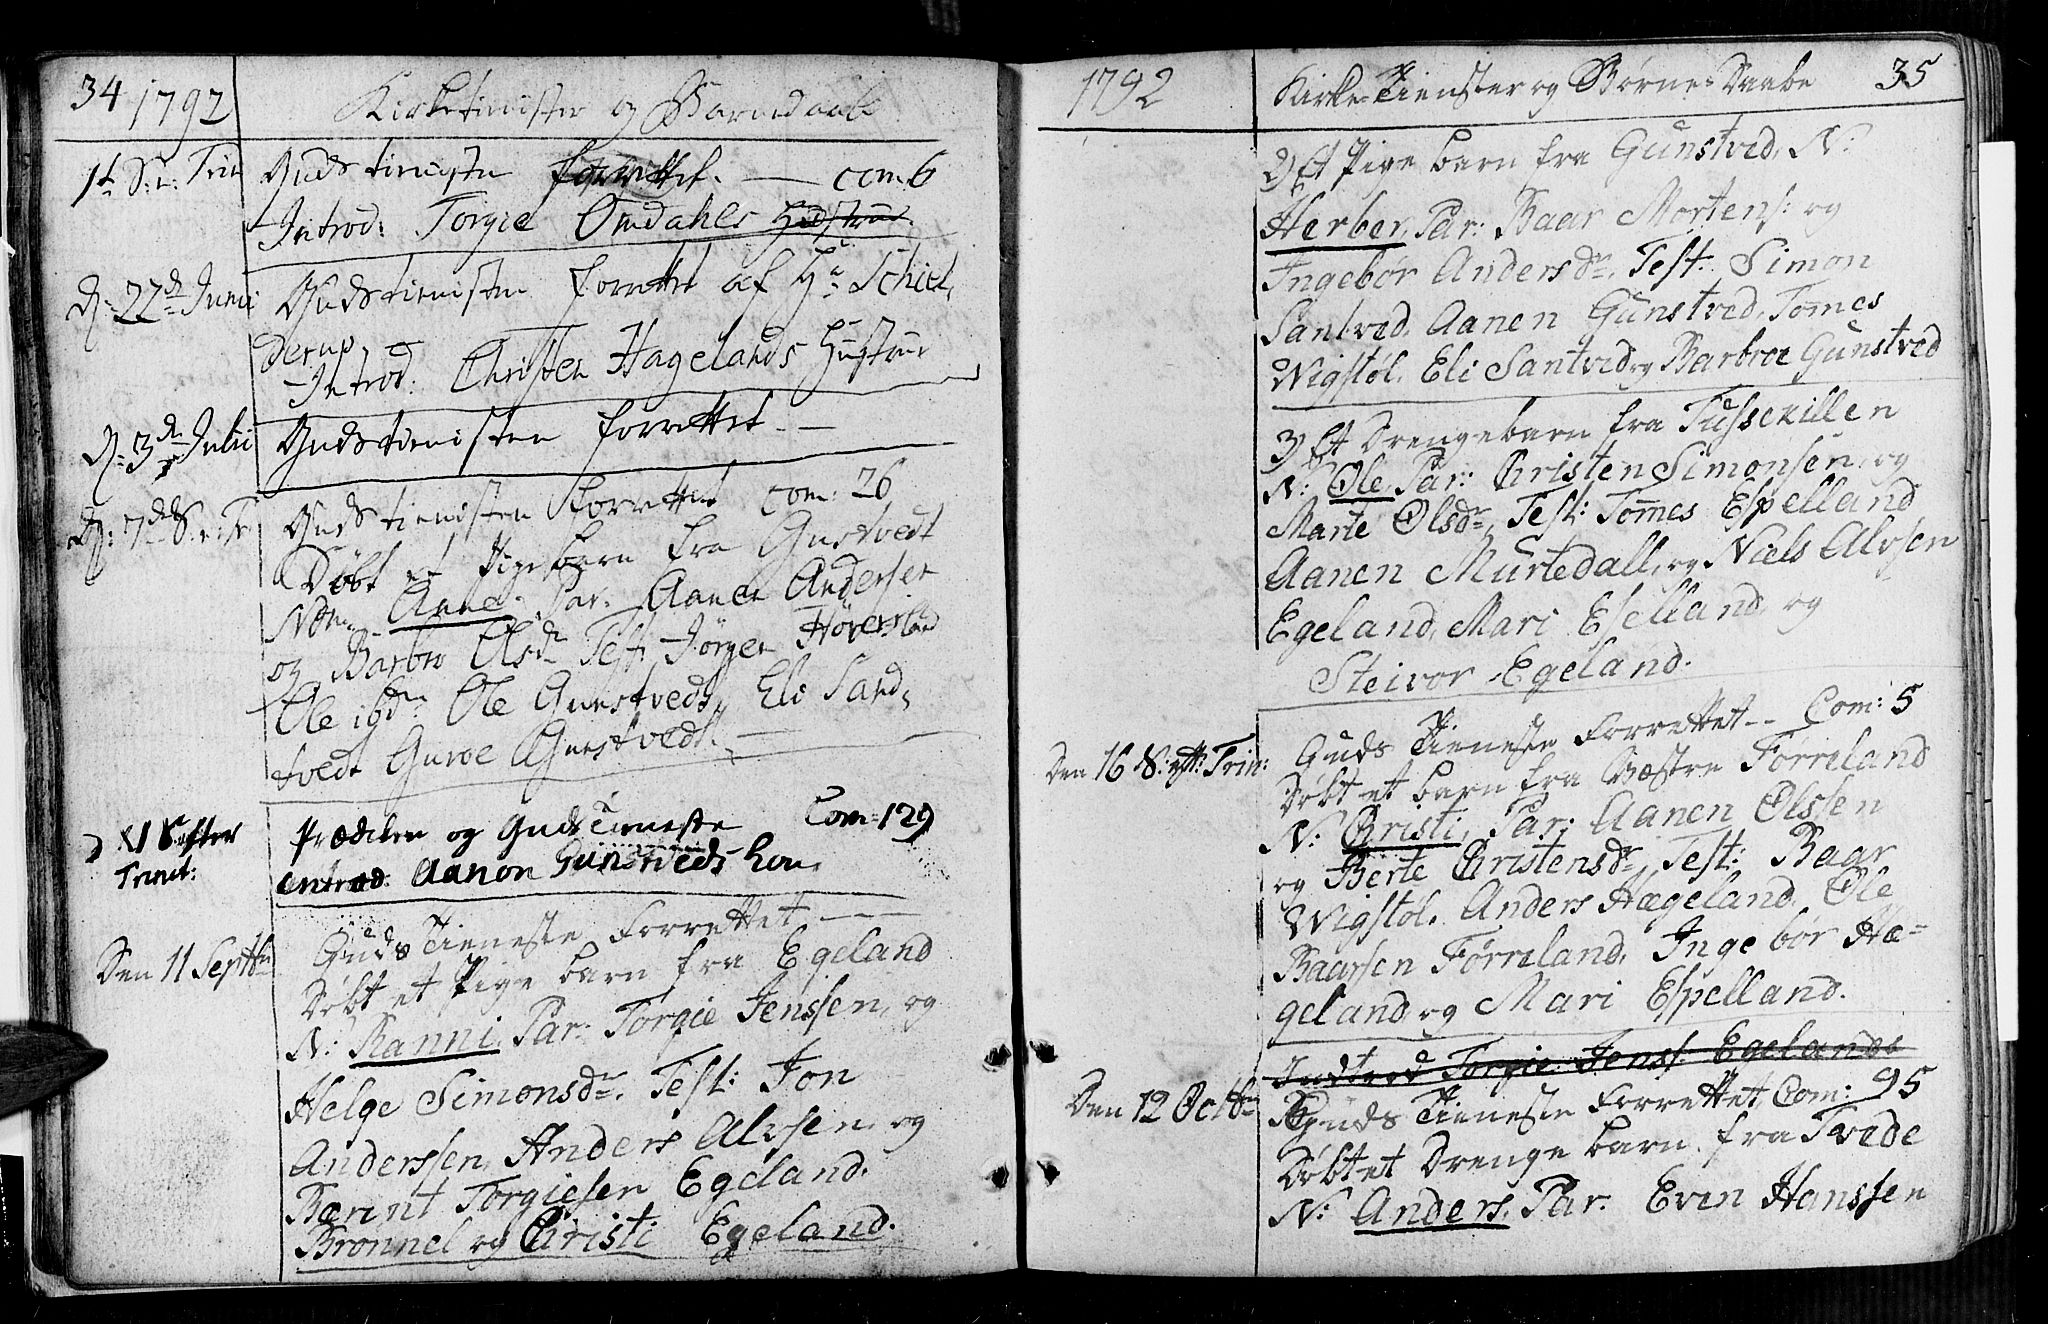 34 1792 Kirketienister og Børnedaab
1t S: e: Trin Gudstienisten forrettet. — com. 6
Introd: Torgie Omdahls Hustrue
D: 22de Junii Gudstienisten forrettet af Hr Schiel,
derup,
Introd: Christen Hagelands Hustrue
D: 3de Julii Gudstienisten forrettet. —
D: 7de S. e. Tr Gudstienisten Forrettet com: 26
Døbt et Pigebarn fra Gunstvedt
Nom. Anne. Par. Aanen Andersen
og Barbro Olsdr Test. Jørgen
Ole ibdm: Ole Gunstveds, Eli Sand,
tvedt Guroe Gunstvedt. —
d XI S efter Prædiken og Guds Tieneste Com: 129
Trinit: introd: Aanon Gunstveds kone
Guds Tieneste Forrettet — —
Den 11 Septbr Døbt et Pige barn fra Egeland
N: Ranni, Par: Torgie Jenssen, og
Helge Simonsdr. Test: Jon
Anderssen, Anders Alvsen, og
Berint Torgiesen Egeland.
Bronnel og Christi Egeland.
1792 Kirke-Tienster og Børne-Daabe 35
2) Et Pige barn fra Gunstved, N:
Herber, Par: Baar Mortens: og
Ingebør Andersdr, Test: Simon
Santved, Aanen Gunstved, Tom̄es
Wigstøl, Eli Santvid og Barbroe Gunstved
3) Et Drengebarn fra Tussekillen
N: Ole, Par: Christen Simonsen, og
Marte Olsdr, Test: Tom̄es Espelland
Aanen Murtedall, og Niels Alvsen
Egeland, Mari Eselland, og
Steivor Egeland.
Guds Tieneste Forrettet -- Com: 5
Den 16 S: eft: Trin: Døbt et barn fra Vestre Førreland
N: Christi, Par: Aanen Olssen
og Berte Christensdr, Test: Baar
Wigstøl, Anders Hægeland, Ole
Baarsen Førreland, Ingebør Hæ-
geland, og Mari Espelland.
Indtrod Torgie Jens: Egelands
Den 12 Octbr Guds Tieneste Forrettet, Com: 95
Døbt et Drenge barn fra Tvede
N: Anders, Par. Even Hanssen